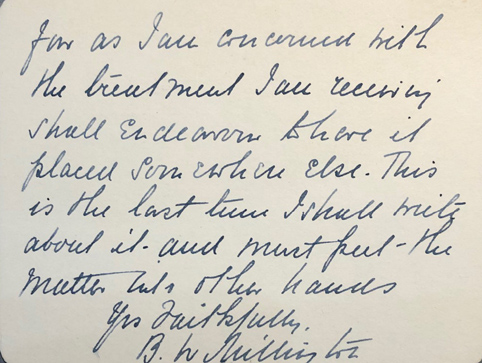 far as I am concerned with
the treatment I am receiving
shall Endeavour to have it
placed somewhere else. This
is the last time I shall write
about it. and must put the
matter into other hands
Yrs Faithfully.
B. W Millington